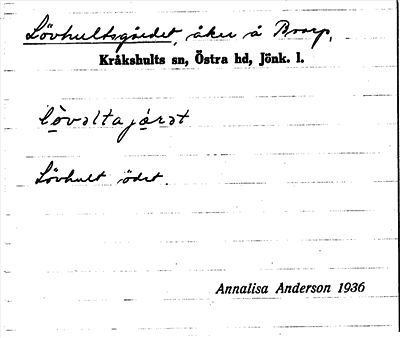 Lövhultsgärdet, åker å Brorp,
Kråkshults sn, Östra hd, Jönk. l.
lövəltajárət
Lövhult ödet.
Annalisa Anderson 1936